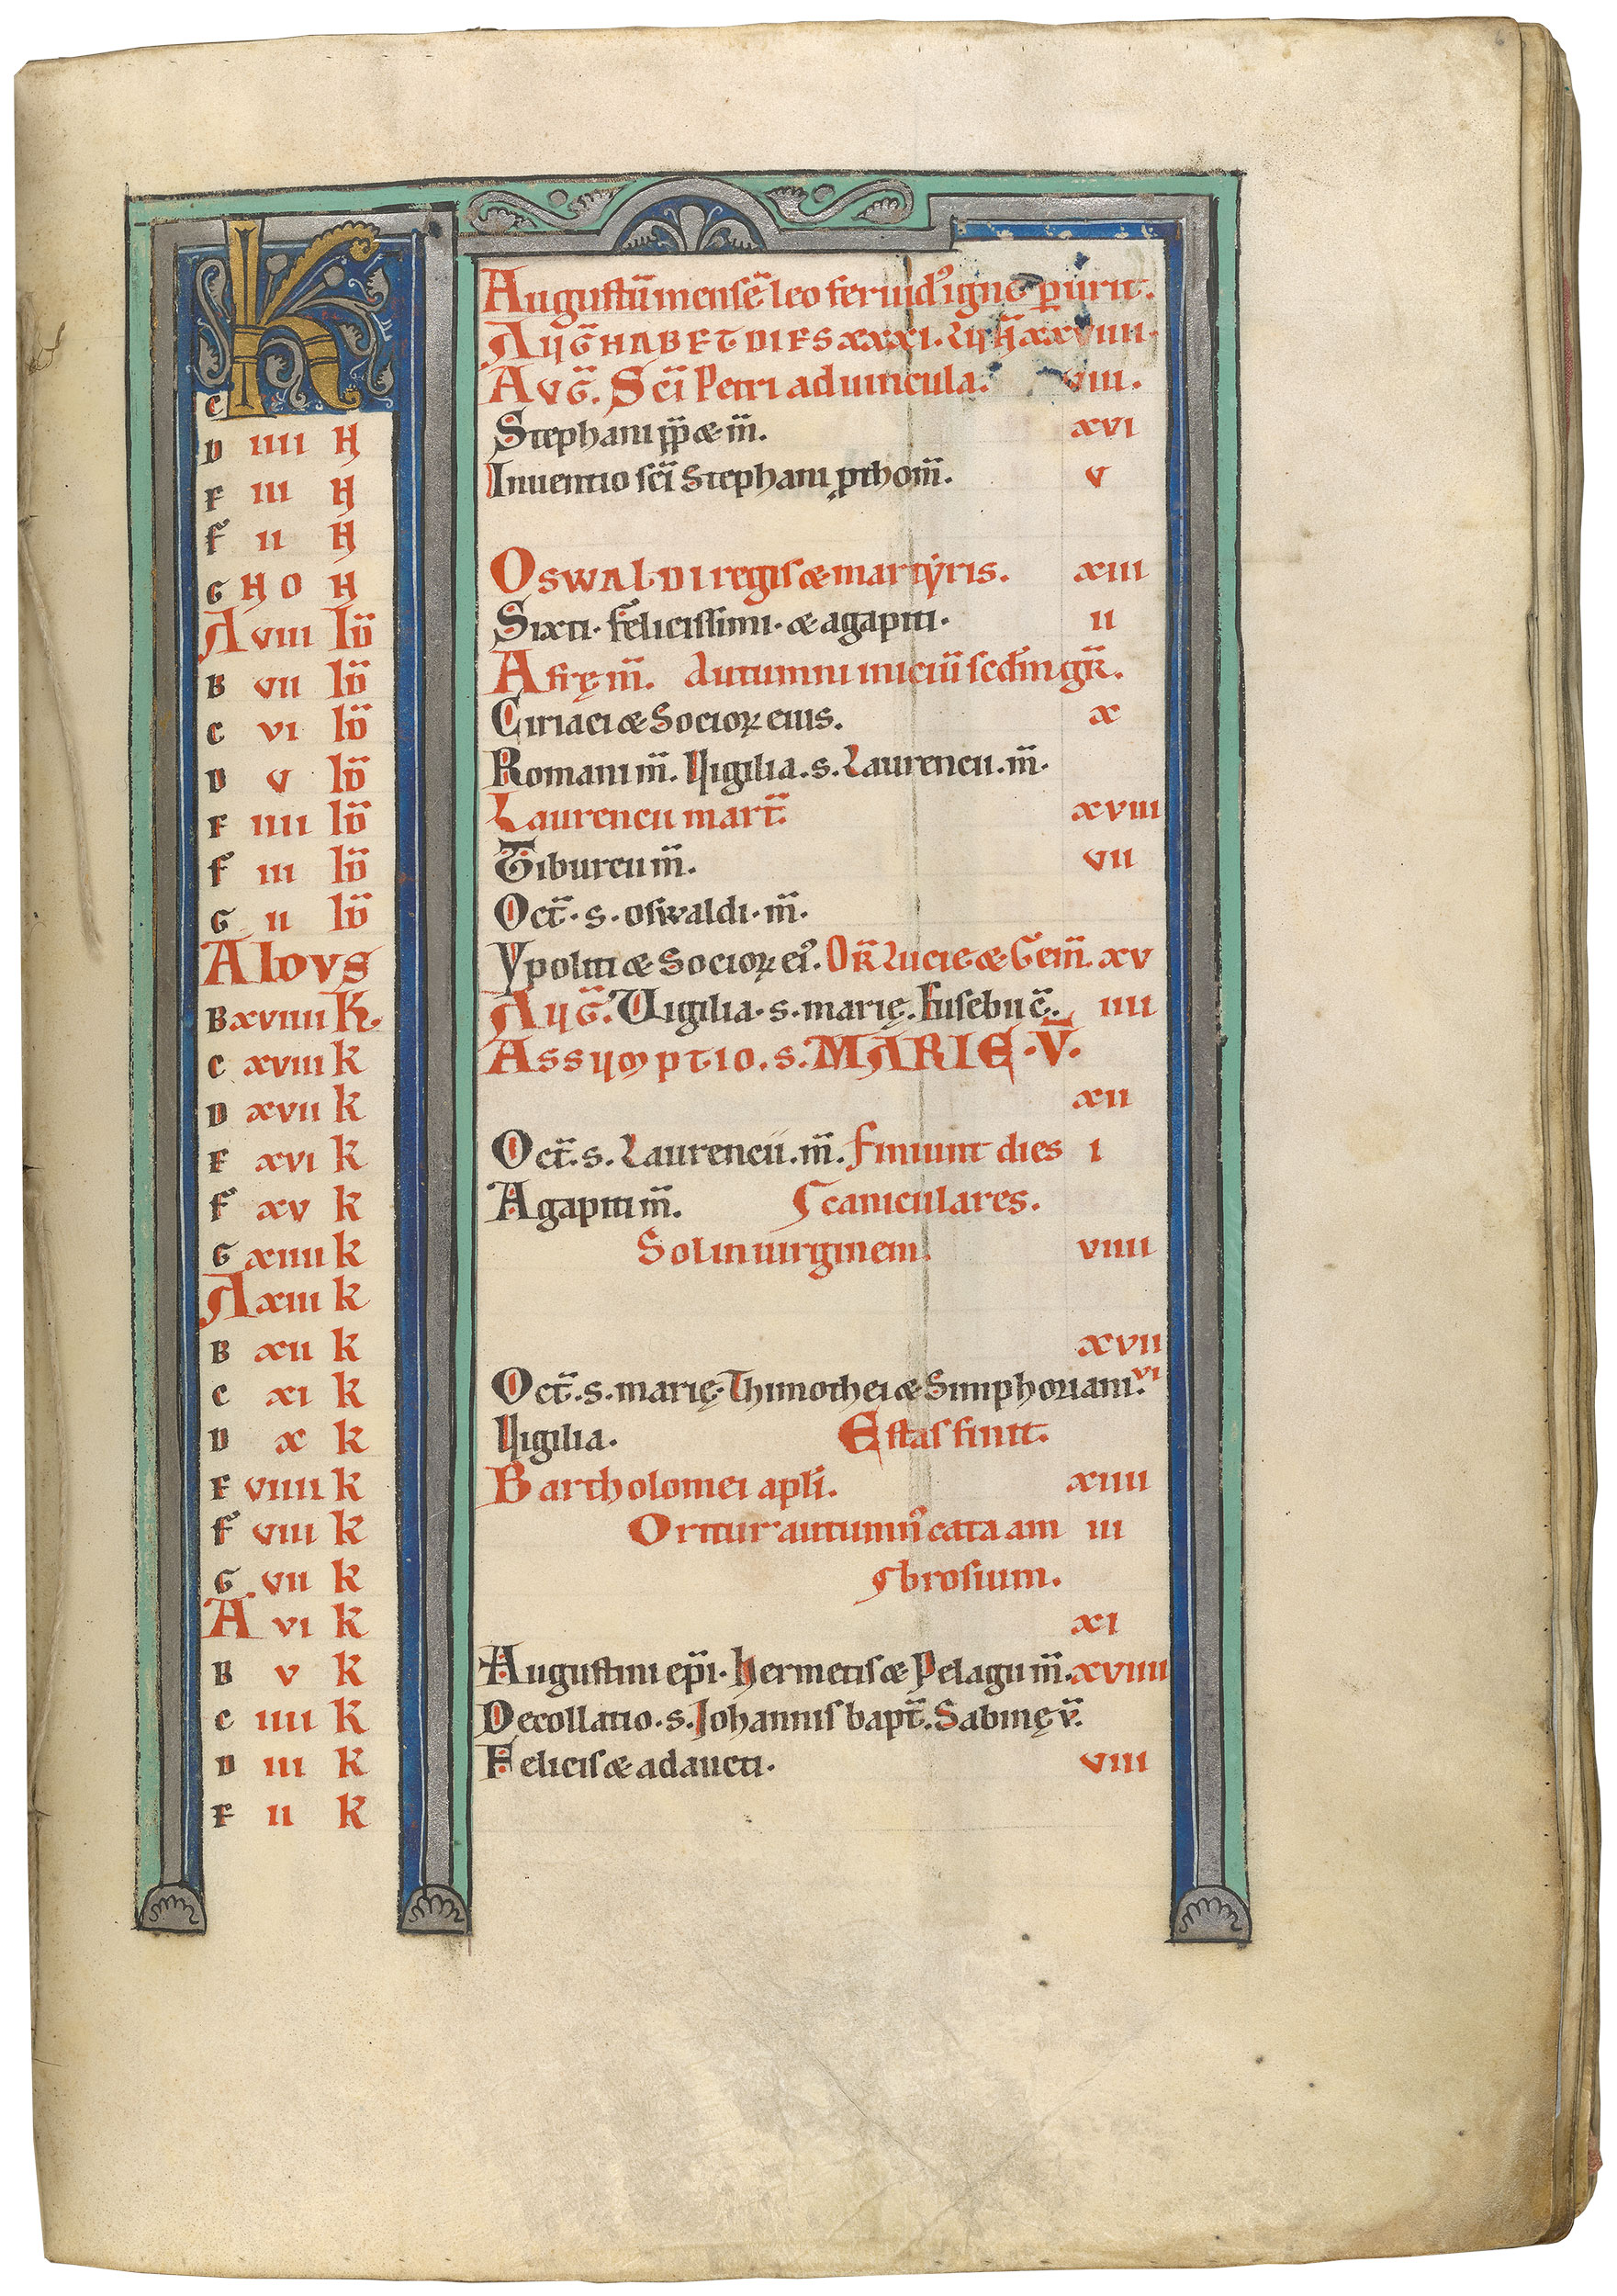 Augustū mensē leo feruid᾽ igne ꝑurit.
AUḠ HABET DIES XXXI. LUN̄ XXVIIII.
K
C AUḠ. Sc̄i Petri aduincula. viii.
D iiii N Stephani pp̄ æ m̄. xvi
E iii N Inuentio sc̄i Stephani ꝓthom̄. v
F ii N
G NO N OSWALDI regis æ martẏris. xiii
A viii Id̄ Sixti. felicissimi. æ agapiti. ii
B vii Id̄ Afrę m̄. Autumni iniciū scd̄m gr̄.
C vi Id̄ Ciriaci æ Socioꝝ eius. x
D v Id̄ Romani m̄. Uigilia. s. Laurencii. m̄.
E iiii Id̄ Laurencii mart̄. xviii
F iii Id̄ Tiburcii m̄. vii
G ii Id̄ Oct̄. s. oswaldi. m̄.
A IDVS Ypoliti æ Socioꝝ ei᾽. Or̄ Lucie æ Gem̄. xv
B xviiii K. AUḠ. Uigilia. s. marię. Eusebii c̄. iiii
C xviii k ASSUMPTIO. s. MARIE. V̄.
D xvii k xii
E xvi k Oct̄. s. Laurencii. m̄. Finiunt dies i
F xv k Agapiti m̄. caniculares.
G xiiii k Sol in uirginem. viiii
A xiii k
B xii k xvii
C xi k Oct̄. s. marię. Thimothei æ Simphoriani. vi
D x k Uigilia. Estas finit.
E viiii k Bartholomei apl̄i. xiiii
F viii k Oritur autumn᾽ cata am iii
G vii k brosium.
A vi k xi
B v k Augustini ep̄i. hermetis æ Pelagii m̄. xviiii
C iiii k Decollatio. s. Johannis bapt̄. Sabinę v̄.
D iii k Felicis æ adaucti. viii
E ii k